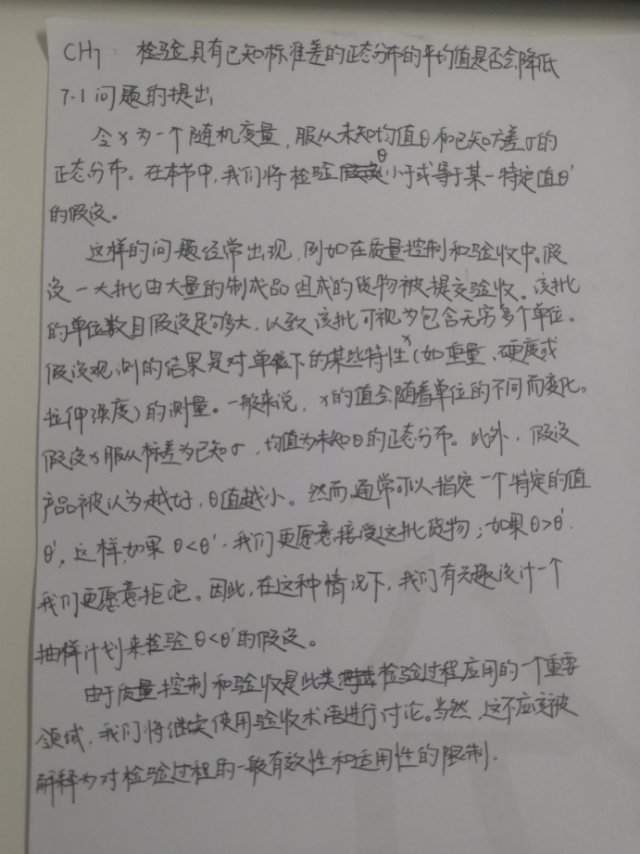 CH7. 检验具有已知标准差的正态分布的平均值是否会降低
7.1 问题的提出
令x为一个随机变量，服从未知均值θ和已知方差σ的
正态分布。在本节中，我们将检验θ小于或等于某一特定值θ'
的假设。
这样的问题经常出现，例如在质量控制和验收中。假
设一大批由大量的制成品组成的货物被提交验收。该批
的单位数目假设足够大，以致该批可视为包含无穷多个单位。
假设观测的结果是对单位下的某些特性x(如重量、硬度或
拉伸强度)的测量。一般来说，x的值会随着单位的不同而变化。
假设x服从标差为已知σ，均值为未知θ的正态分布。此外，假设
产品被认为越好，θ值越小。然而，通常可以指定一个特定的值
θ'，这样，如果θ<θ'，我们更愿意接受这批货物；如果θ>θ'，
我们更愿意拒绝。因此，在这种情况下，我们有兴趣设计一个
抽样计划来检验θ<θ'的假设。
由于质量控制和验收是此类检验过程应用的一个重要
领域，我们将继续使用验收术语进行讨论。当然，这不应该被
解释为对检验过程的一般有效性和适用性的限制.